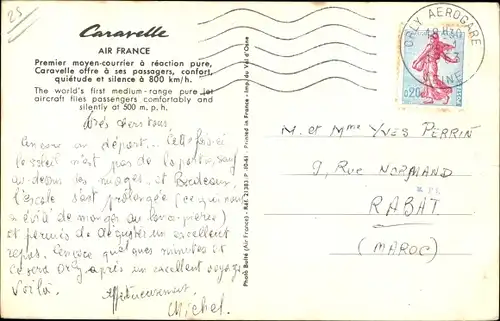 25
Caravelle
AIR FRANCE
Premier moyen-courrier à réaction pure,
Caravelle offre à ses passagers, confort,
quiétude et silence à 800 km/h.
The world's first medium-range pure jet
aircraft flies passengers comfortably and
silently at 500 m.p.h.
Très chers tous
Encore un départ... Cette fois-ci
le soleil n'est pas de la partie, sauf
au-dessus des nuages, et Bordeaux,
l'escale s'est prolongée (ce qui nous
a évité de manger au lance-pierre)
et permis de déguster un excellent
repas. Encore quelques minutes et
ce sera Orly après un excellent voyage
Voilà.
Affectueusement,
Michel.
Photo Baité (Air France) - Réf. 21383/P 10-61 - Printed in France - Imp. du Val d'Osne
ORLY AEROGARE
SEINE
0,20
M. et Mme YVES PERRIN
9, RUE NORMAND
RABAT
(MAROC)